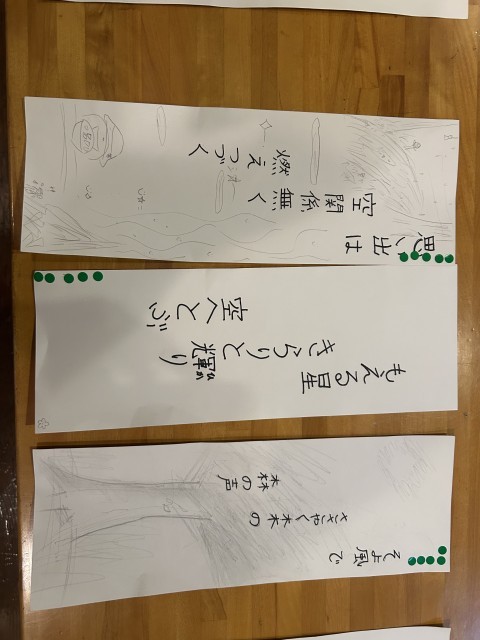 思い出は
空関係無く
燃えつづく
もえる星
きらりと輝り
かが
空へとぶ
そよ風で
ささやく木々の
森の声